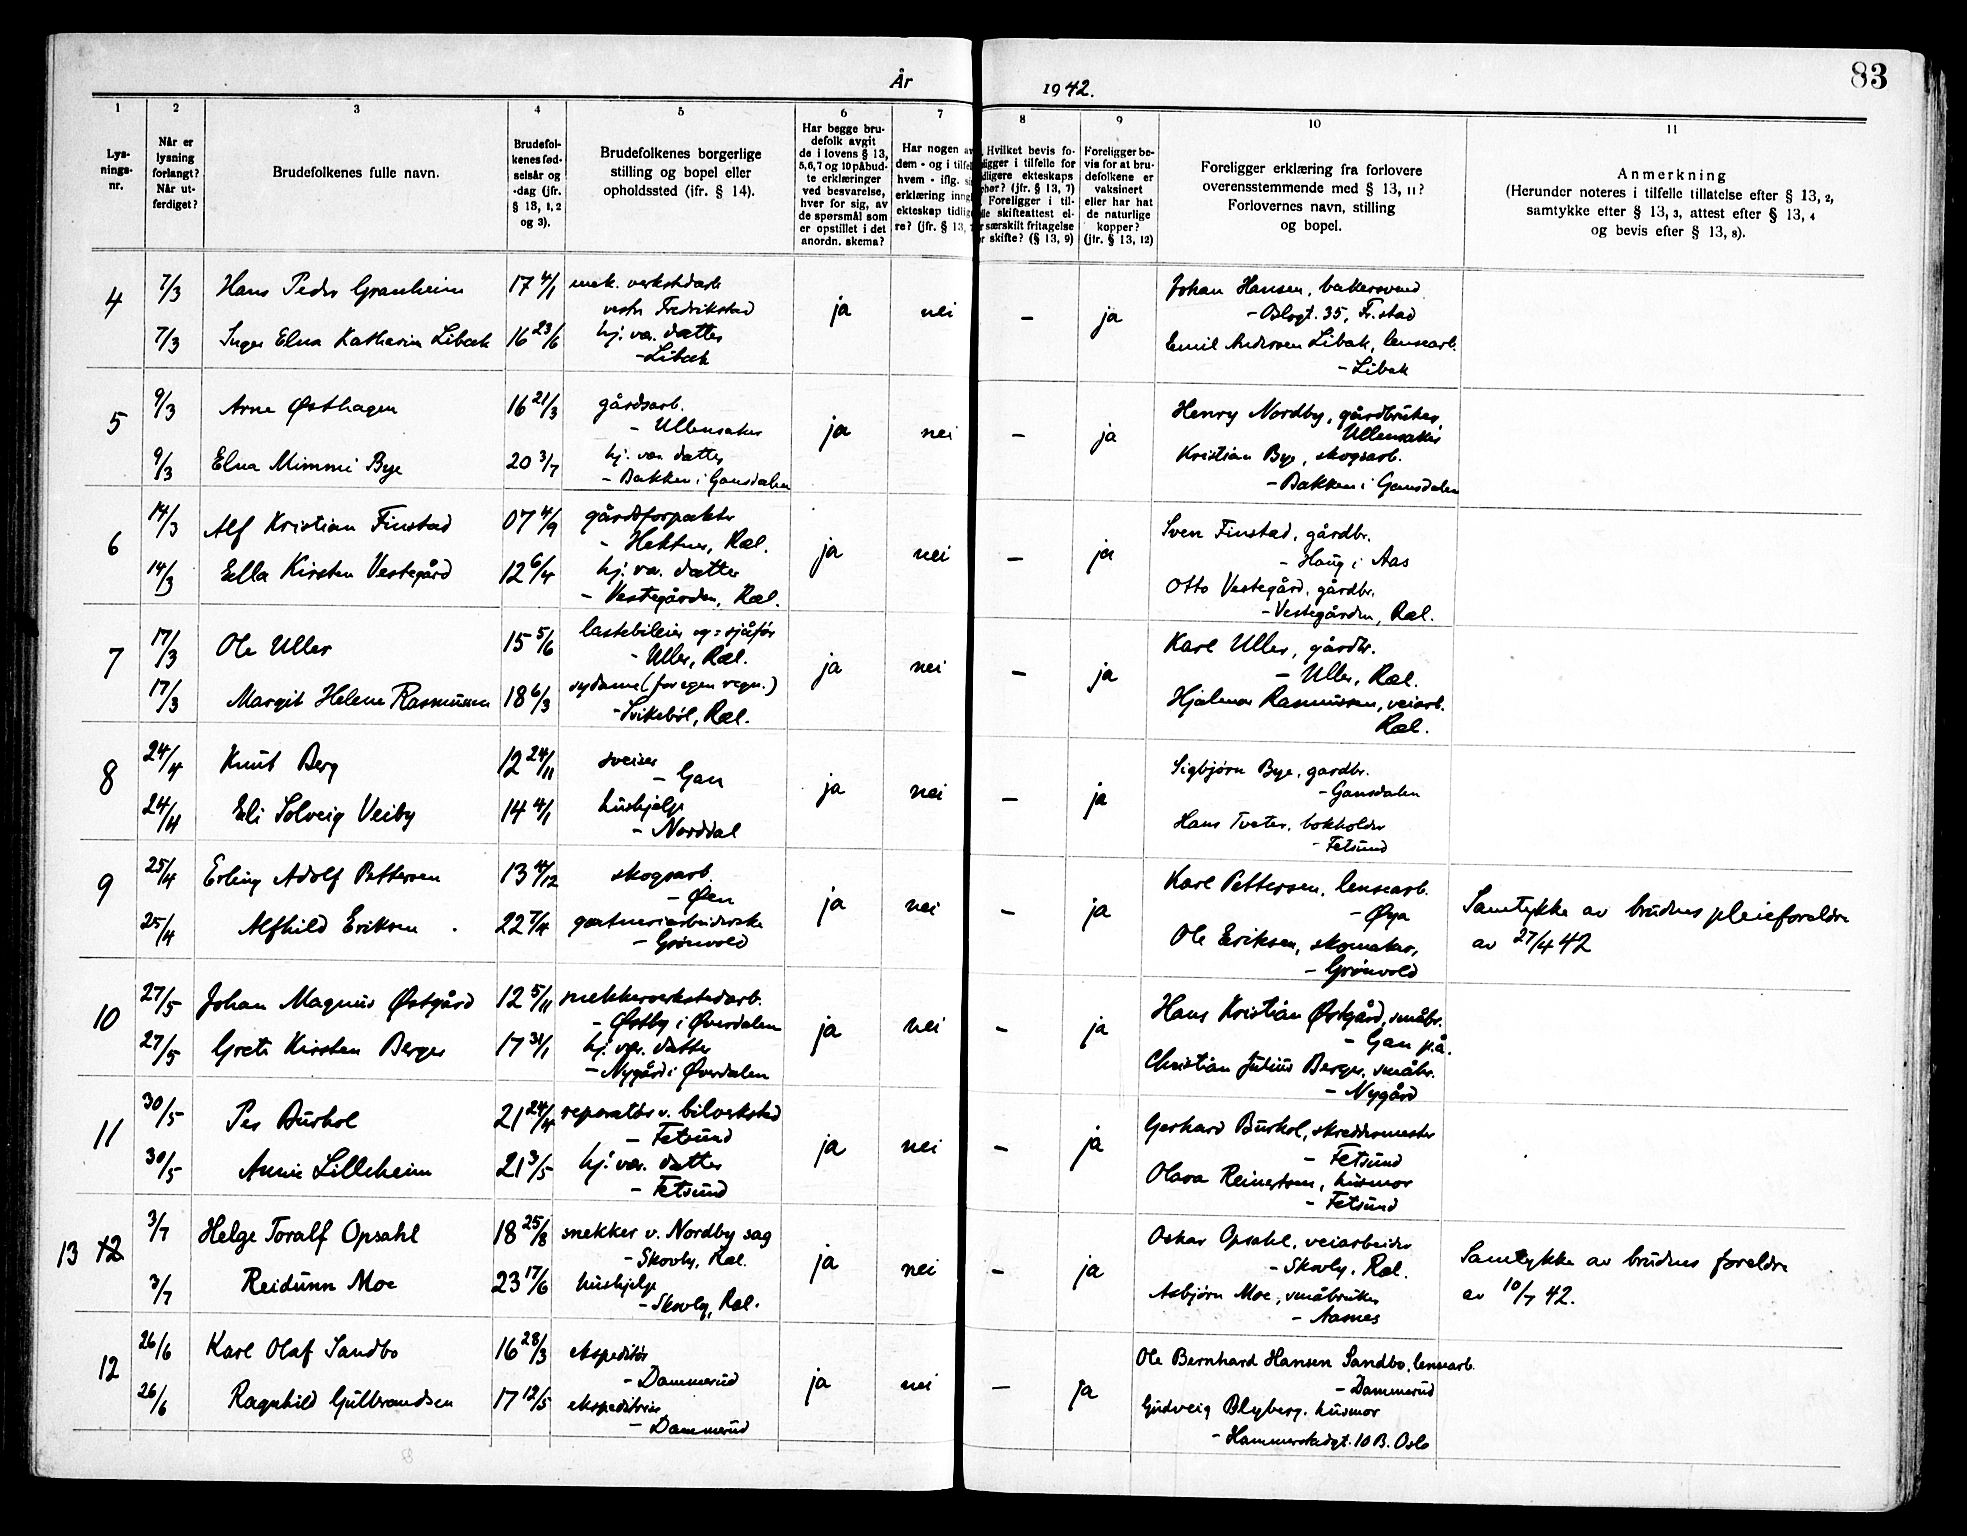 År 1942.
83
1 2 3 4 5 6 7 8 9 10 11
Lys-
nings-
nr.
Når er
lysning
forlangt?
Når ut-
ferdiget?
Brudefolkenes fulle navn.
Brudefol-
kenes fød-
selsår og
-dag (jfr.
§ 13, 1, 2
og 3).
Brudefolkenes borgerlige
stilling og bopel eller
opholdssted (ifr. § 14).
Har begge bru-
defolk avgit
de i lovens § 13,
5, 6, 7 og 10 påbud-
te erklæringer
ved besvarelse,
hver for sig, av
de spørsmål som
er opstillet i det
anordn. skema?
Har nogen av
dem - og i tilfel
hvem - iflg. si
erklæring inng
ekteskap tidlig
re? (jfr. § 13, 7
Hvilket bevis fo-
religger i tilfelle for
dligere ekteskaps
pher? (jfr. § 13, 7)
Foreligger i til-
lle skifteattest el-
r særskilt fritagelse
r skifte? (§ 13, 9)
Foreligger be-
vis for at bru-
defolkene er
vaksinert
eller har hat
de naturlige
kopper?
(jfr. § 13, 12)
Foreligger erklæring fra forlovere
overensstemmende med § 13, 11?
Forlovernes navn, stilling
og bopel.
Anmerkning
(Herunder noteres i tilfelle tillatelse efter § 13, 2,
samtykke efter § 13, 3, attest efter § 13, 4
og bevis efter § 13, 8).
4 7/3 Hans Peder Granheim 17 4/1 mek. verkstedarb
vestre Fredrikstad
ja nei - ja
Johan Hansen, bakersvend
- Blogt. 35, Fr.stad
7/3 Inger Elna Katharina Libak 16 23/6 hj. vær. datter
- Libak
Emil Andersen Libak, lensearb.
- Libak
5 9/3 Arne Østhagen 16 21/3 gårdsarb.
- Ullensaker
ja nei - ja
Henry Nordby, gårdbruker,
Ullensaker
9/3 Elna Mimmi Bye 20 3/7 hj. vær. datter
- Bakken i Gansdalen
Kristian Bye, skogsarb.
- Bakken i Gansdalen
6 14/3 Alf Kristian Finstad 07 4/9 gårdsforpakter
- Hektner, Ræl.
ja nei - ja
Sven Finstad, gårdbr.
- Haug i Aas
14/3 Ella Kirsten Vestegård 12 6/4 hj. vær. datter
- Vestegården, Ræl.
Otto Vestegård, gårdbr.
- Vestegården, Ræl.
7 17/3 Ole Uller 15 5/6 lastebileier og = sjåfør
- Uller, Ræl.
ja nei - ja
Karl Uller, gårdbr.
- Uller, Ræl.
17/3 Margit Helene Rasmussen 18 6/3 sydame (for egen regn.)
- Svikebøl, Ræl.
Hjalmar Rasmussen, veiarb.
Ræl.
8 24/4 Knut Berg 12 24/11 sveiser
- Gan
ja nei - ja
Sigbjørn Bye, gardbr.
- Gansdalen
24/4 Eli Solveig Veiby 14 4/1 hushjelp
- Norddal
Hans Tveter, bokholder
- Fetsund
9 25/4 Erling Adolf Pettersen 13 4/12 skogsarb.
- Øen
ja nei - ja
Karl Pettersen, lensearb.
- Øya
Samtykke av brudens pleieforeldre
av 27/4 42
25/4 Alfhild Eriksen 22 7/4 gartneriarbeiderske
- Grønvold
Ole Eriksen, skomaker,
- Grønvold
10 27/5 Johan Magnus Østgård 12 5/11 snekkerverkstedarb.
- Østby i Øverdalen
ja nei - ja
Hans Kristian Østgård, småbr.
- Gan p.å.
27/5 Grete Kirsten Berger 17 31/1 hj. vær. datter
- Nygård i Øverdalen
Christian Julius Berger, småbr.
- Nygård
11 30/5 Per Burhol 21 24/4 reparatør v. bilverksted
- Fetsund
ja nei - ja
Gerhard Burhol, skreddermester
- Fetsund
30/5 Annie Lilleheim 21 3/5 hj. vær. datter
- Fetsund
Olava Reinertsen, husmor
- Fetsund
13 12 3/7 Helge Toralf Opsahl 18 25/8 snekker v. Nordby sag
- Skovly, Ræl.
ja nei - ja
Oskar Opsahl, veiarbeider
- Skovly, Ræl.
Samtykke av brudens foreldre
av 10/7 42.
3/7 Reidunn Moe 23 17/6 hushjelp
- Skovly, Ræl.
Asbjørn Moe, småbruker
- Aasnes
12 26/6 Karl Olaf Sandbo 16 28/3 ekspeditør
- Dammerud
ja nei - ja
Ole Bernhard Hansen Sandbo, lensearb.
- Dammerud
26/6 Ragnhild Gulbrandsen 17 12/5 ekspeditrise
- Dammerud
Gudveig Blyberg, husmor
- Hammerstadgt. 10 B. Oslo